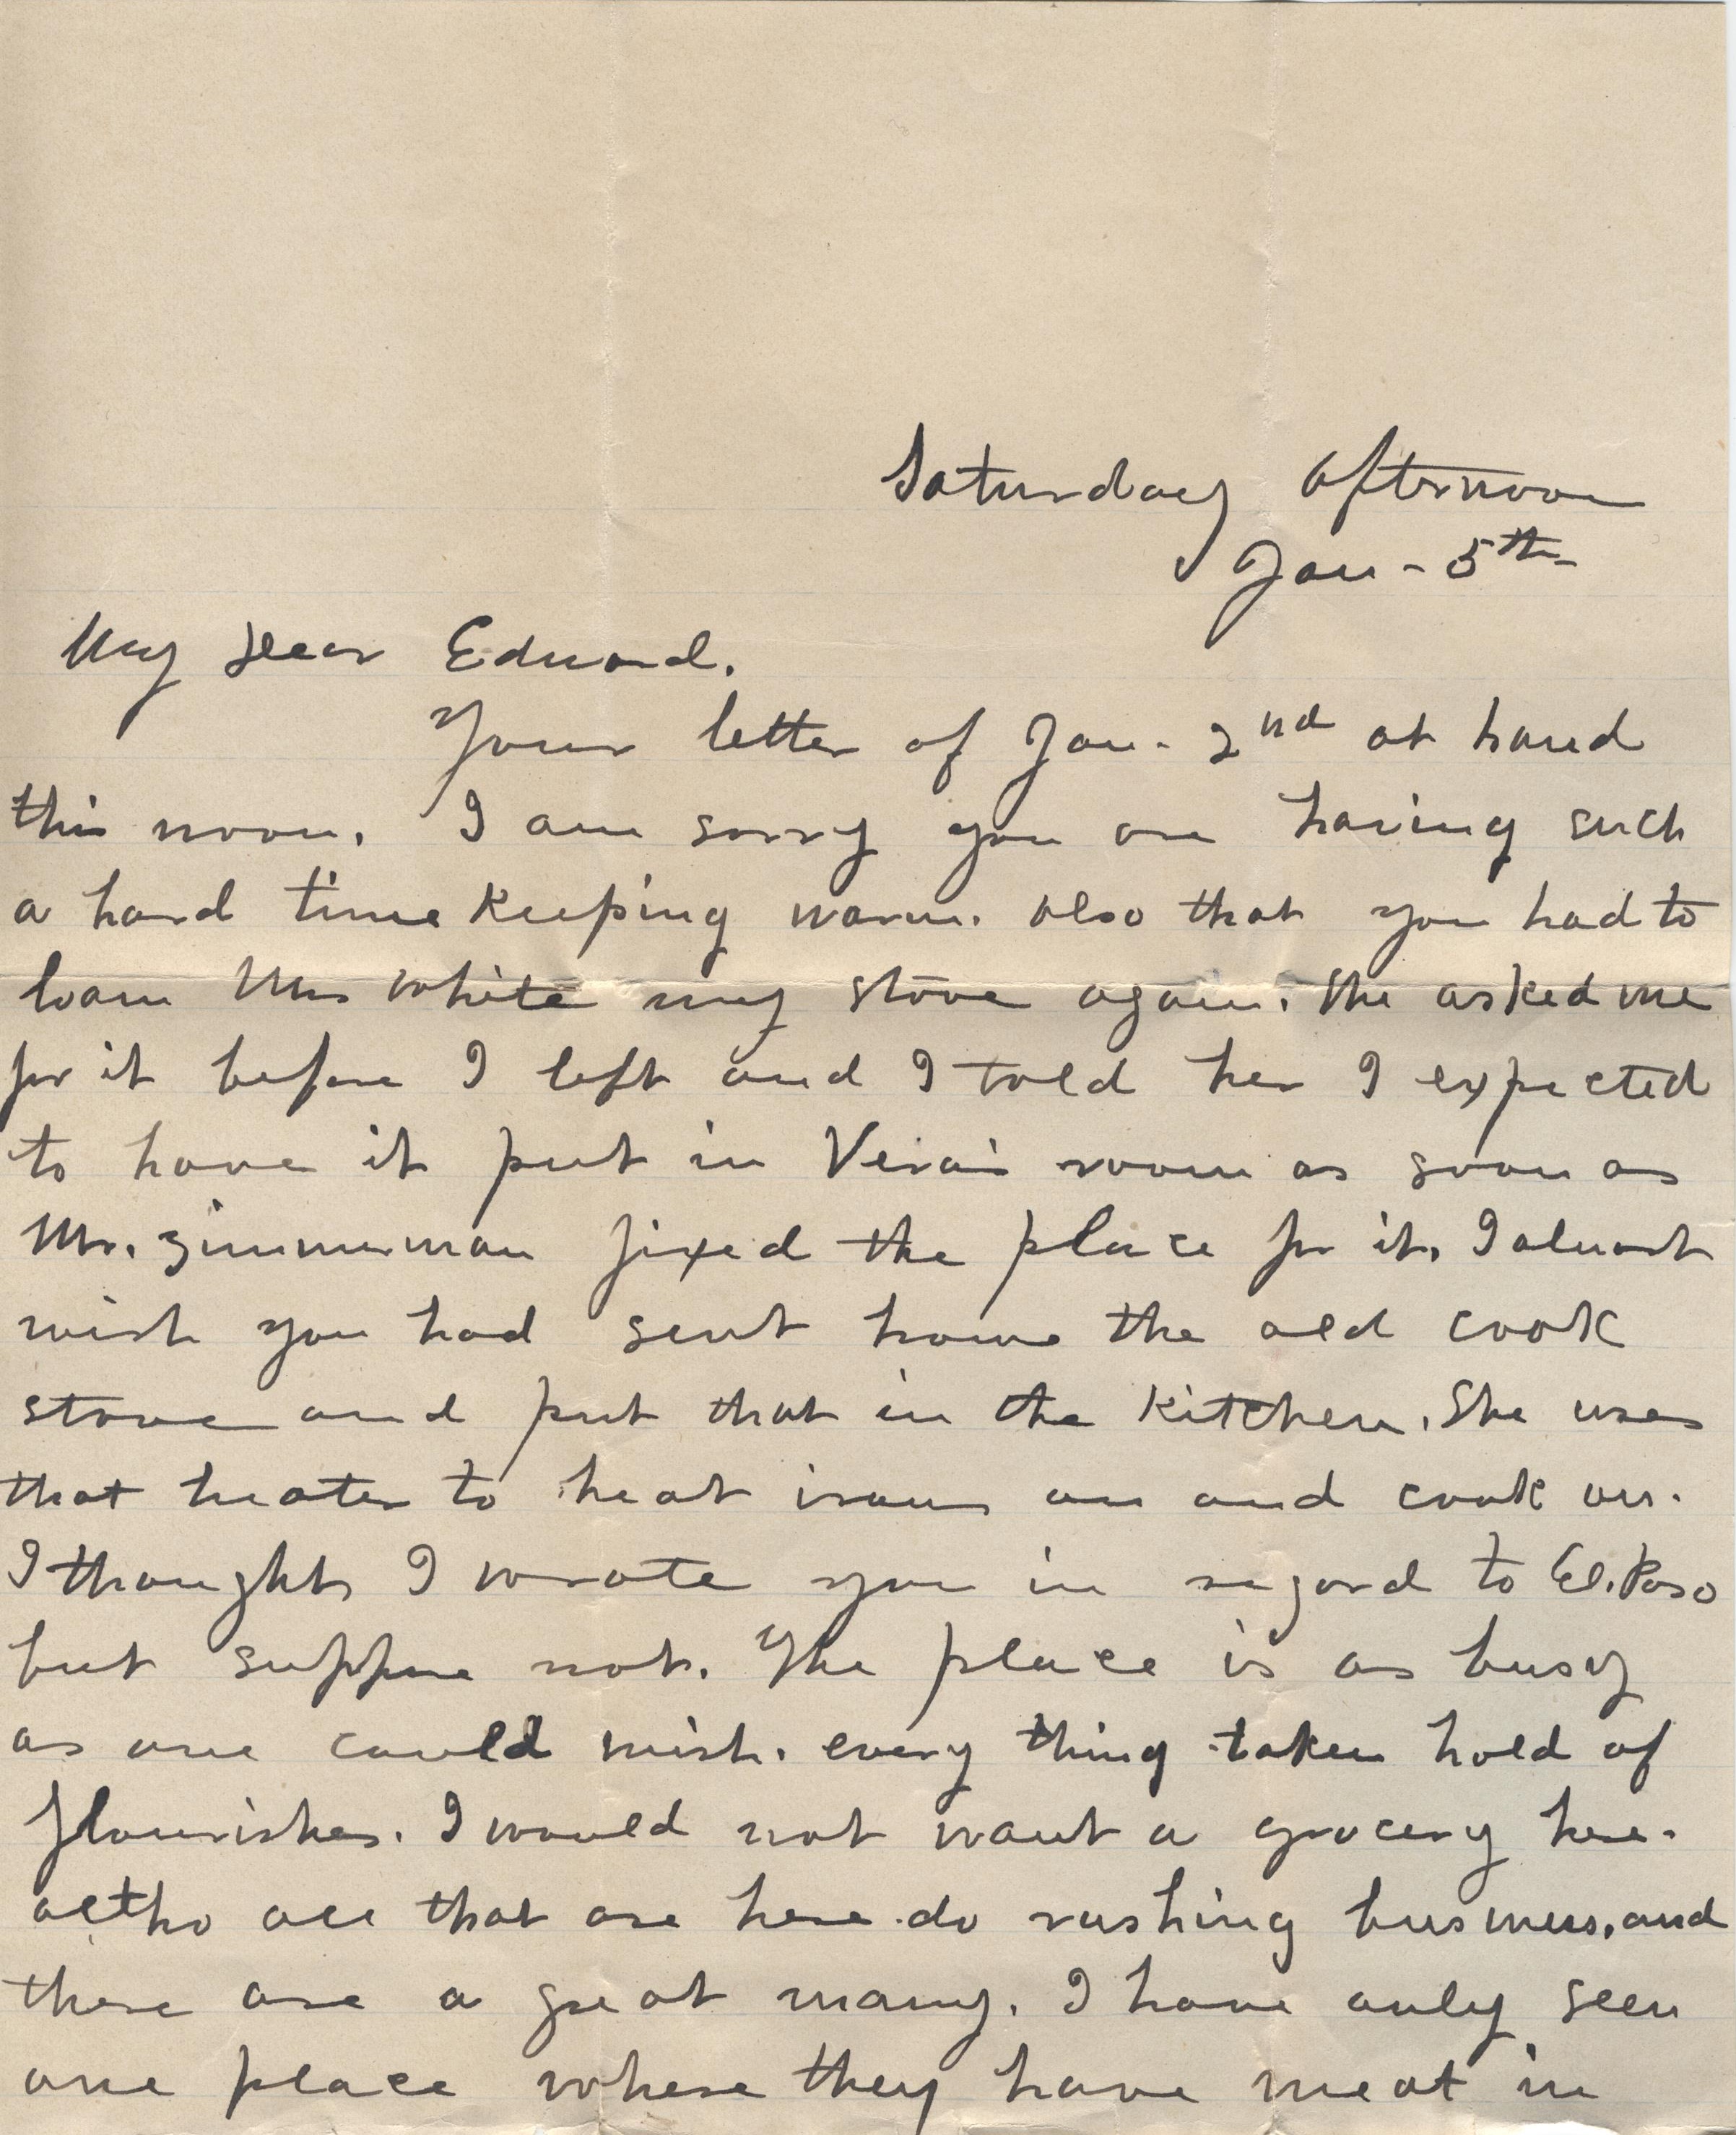 Saturday afternoon
Jan - 5th
My Dear Edward.
Your letter of Jan - 2nd at hand
this noon. I am sorry you are having such
a hard time keeping warm. also that you had to
loan Mrs White my stove again. She asked me
for it before I left and I told her I expected
to have it put in Vera's room as soon as
Mr. Zimmerman fixed the place for it, I almost
wish you had sent home the old cook
stove and put that in the Kitchen. She uses
that heater to heat irons on and cook on.
I thought I wrote you in regard to El. Paso
but suppose not. The place is as busy
as one could wish. every thing taken hold of
flourishes. I would not want a grocery here.
altho all that are here do rushing business, and
there are a great many. I have only seen
one place where they have meat in